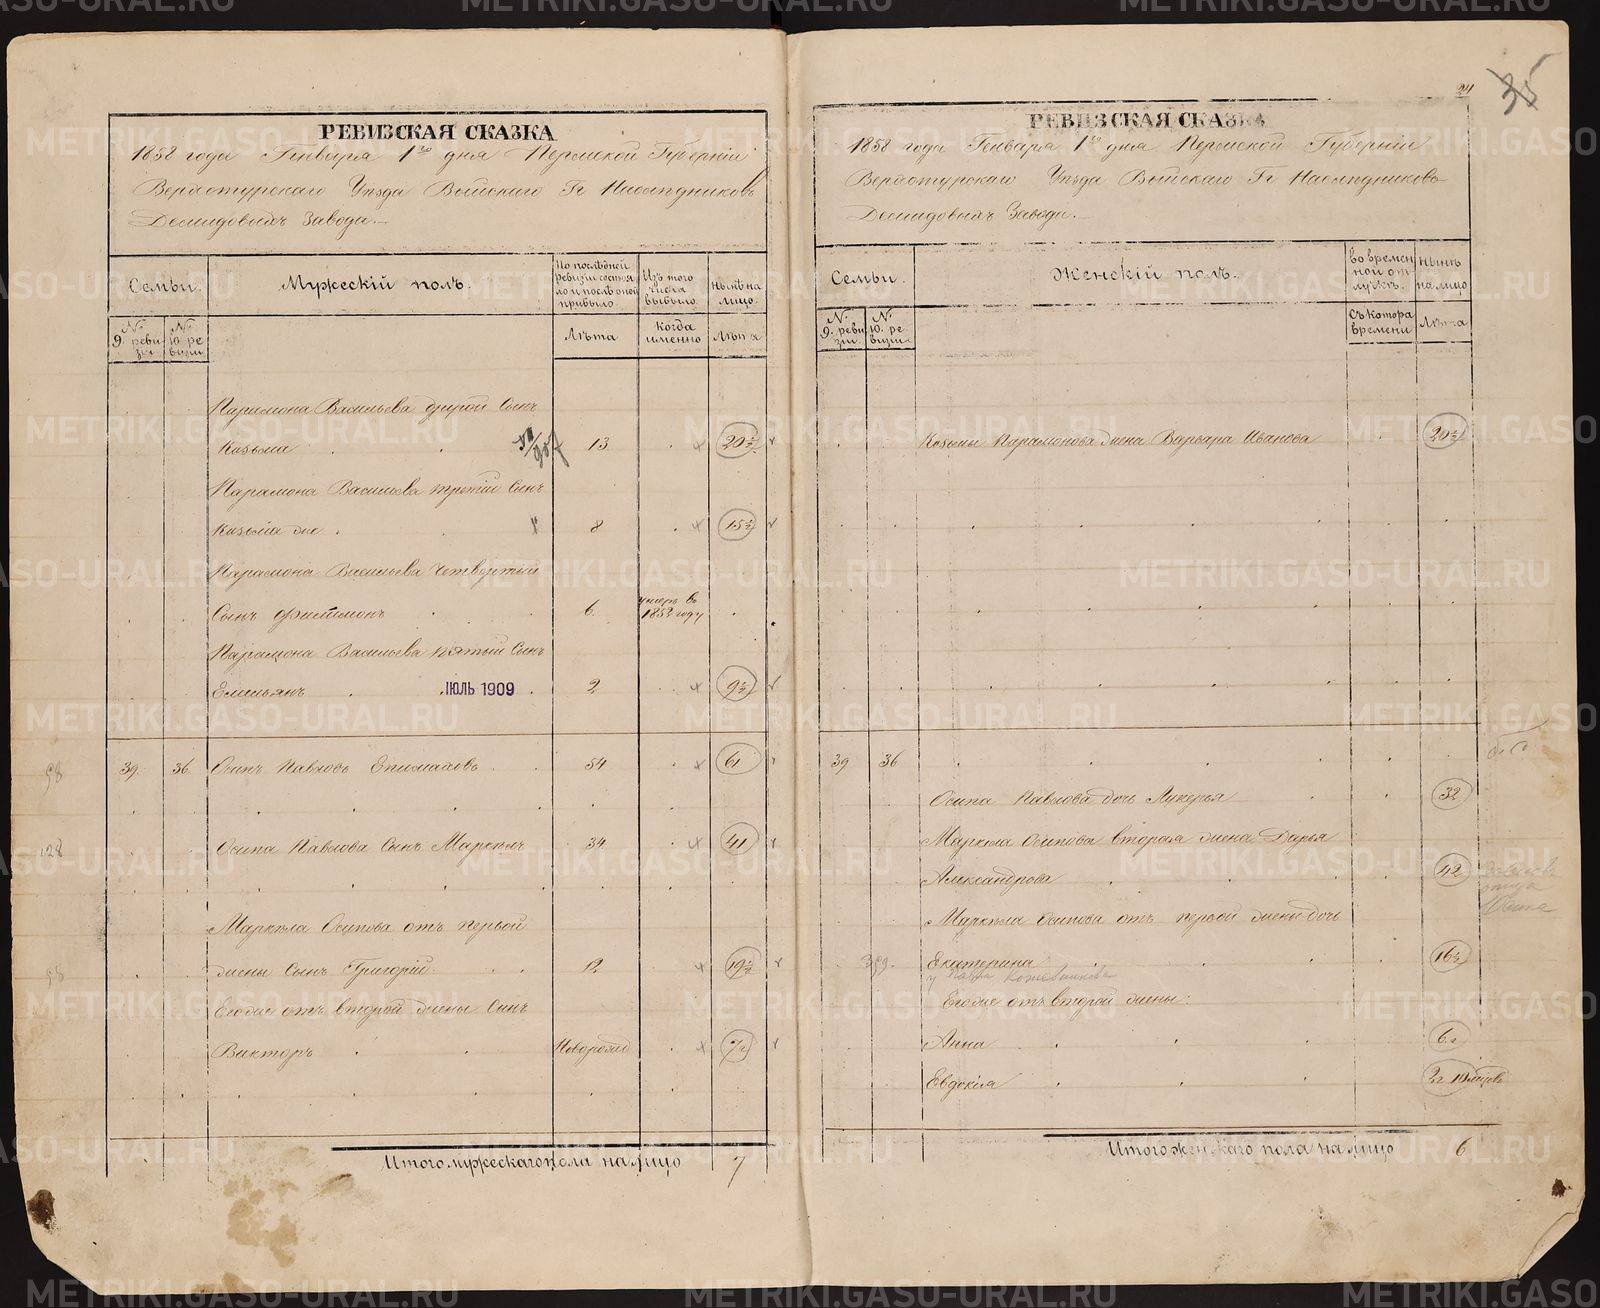 РЕВИЗСКАЯ СКАЗКА
1858 года Генваря 1го дня Пермской Губерніи
Верхотурскаго Уѣзда Выйскаго Гг Наслѣдниковъ
Демидовыхъ Завода.
Семьи.
Мужескій полъ.
По послѣдней ревизіи состояло и послѣ оной прибыло.
Изъ того числа выбыло.
Нынѣ на лицо.
№ 9. ревизіи
№ 10. ревизіи
Лѣта
Когда именно
Лѣта
Парамона Васильева другой Сынъ
Козьма 13 20½
Парамона Васильева третій Сынъ
Козьма же 8 15½
Парамона Васильева четвертый
Сынъ Филимонъ 6 умеръ въ 1852 году
Парамона Васильева пятый Сынъ
Емельянъ ІЮЛЬ 1909 2 9½
98 39 36 Осипъ Павловъ Епимаховъ 54 61
128 Осипа Павлова Сынъ Маркелъ 34 41
Маркела Осипова отъ первой
98 жены Сынъ Григорій 12 19½
Егоже отъ второй жены Сынъ
Викторъ Новорожд 7
Итого мужескаго пола на лицо 7
24
35
РЕВИЗСКАЯ СКАЗКА
1858 года Генваря 1го дня Пермской Губерніи
Верхотурскаго Уѣзда Выйскаго Гг Наслѣдниковъ
Демидовыхъ Завода.
Семьи.
Женскій полъ.
Во временной отлучкѣ.
Нынѣ на лицо
№ 9. ревизіи
№ 10. ревизіи
Съ котора времени
Лѣта
Козьмы Парамонова жена Варвара Иванова 20½
39 36
Осипа Павлова дочь Лукерья 32
Маркела Осипова вторая жена Дарья
Александрова 42
Маркела Осипова отъ первой жены дочь
399. Екатерина 16½
у Павла Кожевникова
Егоже отъ второй жены:
Анна 6
Евдокія 2г 10 мѣсяцѣвъ
Итого женскаго пола на лицо 6
METRIKI.GASO-URAL.RU